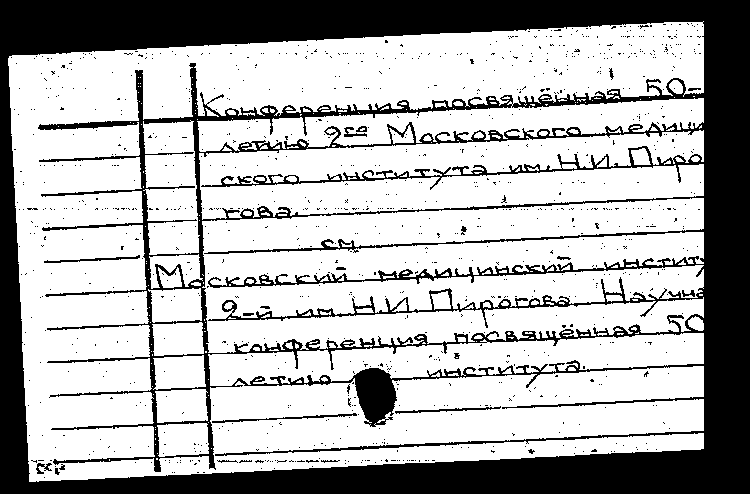 Конференция, посвящённая 50-
летию 2го Московского медици
ского института им. Н.И. Пиро
гова.
см
Московский медицинский институ
2-й, им. Н.И. Пирогова. Научна
конференция, посвящённая 50
летию института.